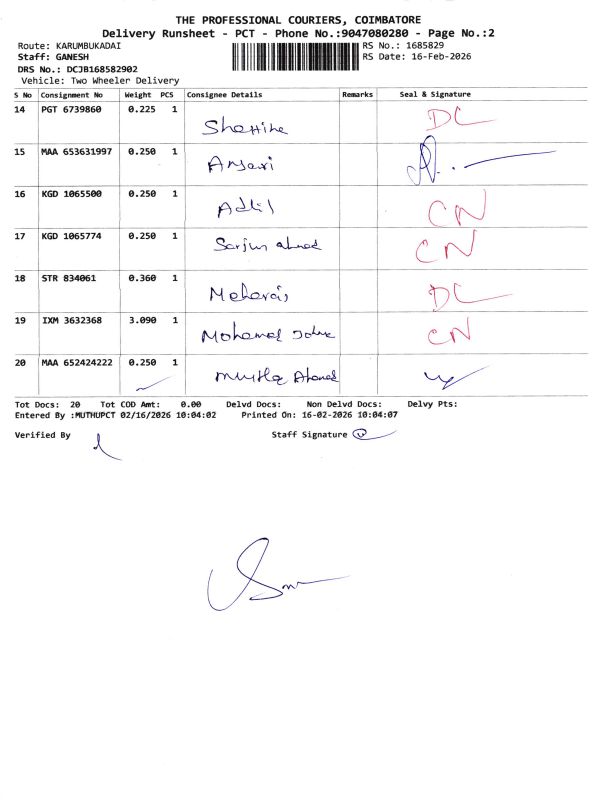 THE PROFESSIONAL COURIERS, COIMBATORE
Delivery Runsheet - PCT - Phone No.:9047080280 - Page No.:2
Route: KARUMBUKADAI RS No.: 1685829
Staff: GANESH RS Date: 16-Feb-2026
DRS No.: DCJB168582902
Vehicle: Two Wheeler Delivery
S No Consignment No Weight PCS Consignee Details Remarks Seal & Signature
14 PGT 6739860 0.225 1 DC
15 MAA 653631997 0.250 1 Ansari
16 KGD 1065500 0.250 1 Adlil CN
17 KGD 1065774 0.250 1 Sarjun ahmed CN
18 STR 834061 0.360 1 DC
19 IXM 3632368 3.090 1 Mohamed CN
20 MAA 652424222 0.250 1 Ahamed
Tot Docs: 20 Tot COD Amt: 0.00 Delvd Docs: Non Delvd Docs: Delvy Pts:
Entered By :MUTHUPCT 02/16/2026 10:04:02 Printed On: 16-02-2026 10:04:07
Verified By Staff Signature